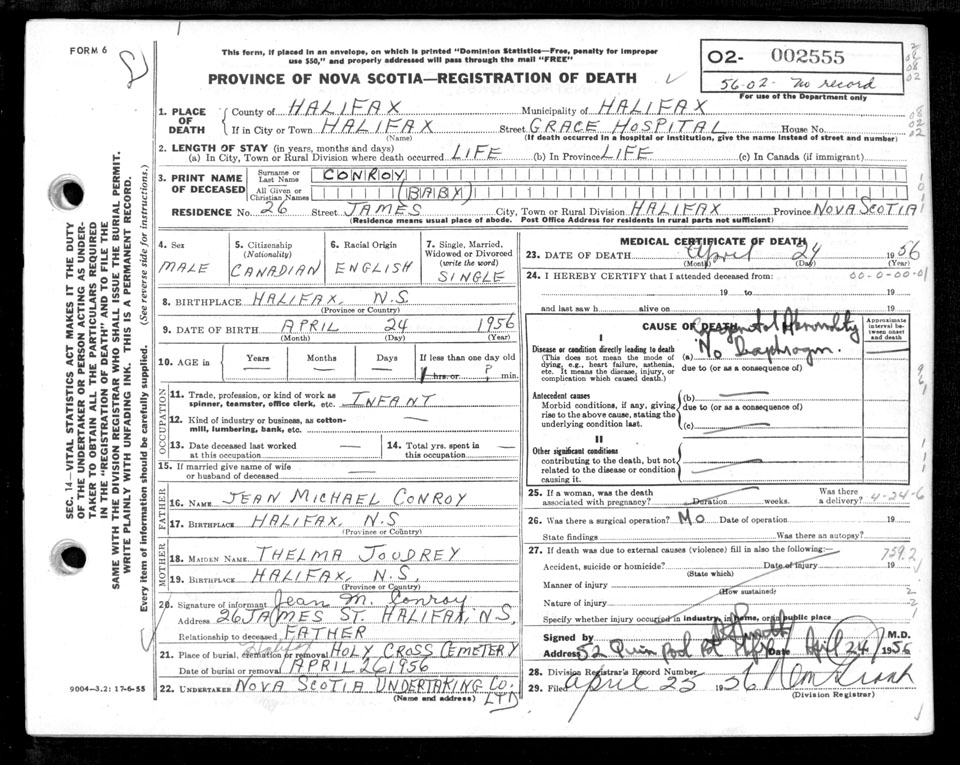 FORM 6
This form, if placed in an envelope, on which is printed "Dominion Statistics—Free, penalty for improper
use $50," and properly addressed will pass through the mail "FREE"
PROVINCE OF NOVA SCOTIA—REGISTRATION OF DEATH
02- 002555
56-02- No record
For use of the Department only
1. PLACE OF DEATH
County of HALIFAX Municipality of HALIFAX
If in City or Town HALIFAX Street GRACE HOSPITAL House No.
(Name) (If death occurred in a hospital or institution, give the name instead of street and number)
2. LENGTH OF STAY (in years, months and days)
(a) In City, Town or Rural Division where death occurred LIFE (b) In Province LIFE (c) In Canada (if immigrant)
3. PRINT NAME OF DECEASED
Surname or Last Name CONROY
All Given or Christian Names (BABY)
RESIDENCE No. 26 Street JAMES City, Town or Rural Division HALIFAX Province NOVA SCOTIA
(Residence means usual place of abode. Post Office Address for residents in rural parts not sufficient)
4. Sex
MALE
5. Citizenship (Nationality)
CANADIAN
6. Racial Origin
ENGLISH
7. Single, Married, Widowed or Divorced (write the word)
SINGLE
8. BIRTHPLACE HALIFAX, N.S.
(Province or Country)
9. DATE OF BIRTH APRIL 24 1956
(Month) (Day) (Year)
10. AGE in Years Months Days If less than one day old
hrs. or ? min.
OCCUPATION
11. Trade, profession, or kind of work as
spinner, teamster, office clerk, etc. INFANT
12. Kind of industry or business, as cotton-
mill, lumbering, bank, etc. —
13. Date deceased last worked
at this occupation —
14. Total yrs. spent in
this occupation —
15. If married give name of wife
or husband of deceased —
FATHER
16. NAME JEAN MICHAEL CONROY
17. BIRTHPLACE HALIFAX, N.S
(Province or Country)
MOTHER
18. MAIDEN NAME THELMA JOUDREY
19. BIRTHPLACE HALIFAX, N.S.
(Province or Country)
20. Signature of informant Jean M. Conroy
Address 26 JAMES ST. HALIFAX, N.S.
Relationship to deceased FATHER
21. Place of burial, cremation or removal HOLY CROSS CEMETERY
Date of burial or removal APRIL 26 1956
22. UNDERTAKER NOVA SCOTIA UNDERTAKING CO. LTD
(Name and address)
9004—3.2: 17-6-55
MEDICAL CERTIFICATE OF DEATH
23. DATE OF DEATH April 24 1956
(Month) (Day) (Year)
24. I HEREBY CERTIFY that I attended deceased from:
00-0-00-01
19 to 19
and last saw h alive on 19
CAUSE OF DEATH
Approximate interval between onset and death
I
Disease or condition directly leading to death
(This does not mean the mode of
dying, e.g., heart failure, asthenia,
etc. It means the disease, injury, or
complication which caused death.)
(a) Congenital Abnormality
No Diaphragm.
due to (or as a consequence of)
Antecedent causes
Morbid conditions, if any, giving
rise to the above cause, stating the
underlying condition last.
(b)
due to (or as a consequence of)
(c)
II
Other significant conditions
contributing to the death, but not
related to the disease or condition
causing it.
25. If a woman, was the death
associated with pregnancy? Duration weeks. Was there a delivery?
4-24-6
26. Was there a surgical operation? No Date of operation 19
State findings Was there an autopsy?
27. If death was due to external causes (violence) fill in also the following:
759.2
Accident, suicide or homicide? Date of injury 19
(State which)
Manner of injury
(How sustained)
Nature of injury
Specify whether injury occurred in industry, in home, or in public place
Signed by M.D.
Address 52 Quinpool Rd Date April 24 1956
28. Division Registrar's Record Number
29. Filed April 25 1956
(Division Registrar)
SEC. 14—VITAL STATISTICS ACT MAKES IT THE DUTY
OF THE UNDERTAKER OR PERSON ACTING AS UNDER-
TAKER TO OBTAIN ALL THE PARTICULARS REQUIRED
IN THE "REGISTRATION OF DEATH" AND TO FILE THE
SAME WITH THE DIVISION REGISTRAR WHO SHALL ISSUE THE BURIAL PERMIT.
WRITE PLAINLY WITH UNFADING INK. THIS IS A PERMANENT RECORD.
Every item of information should be carefully supplied. (See reverse side for instructions.)